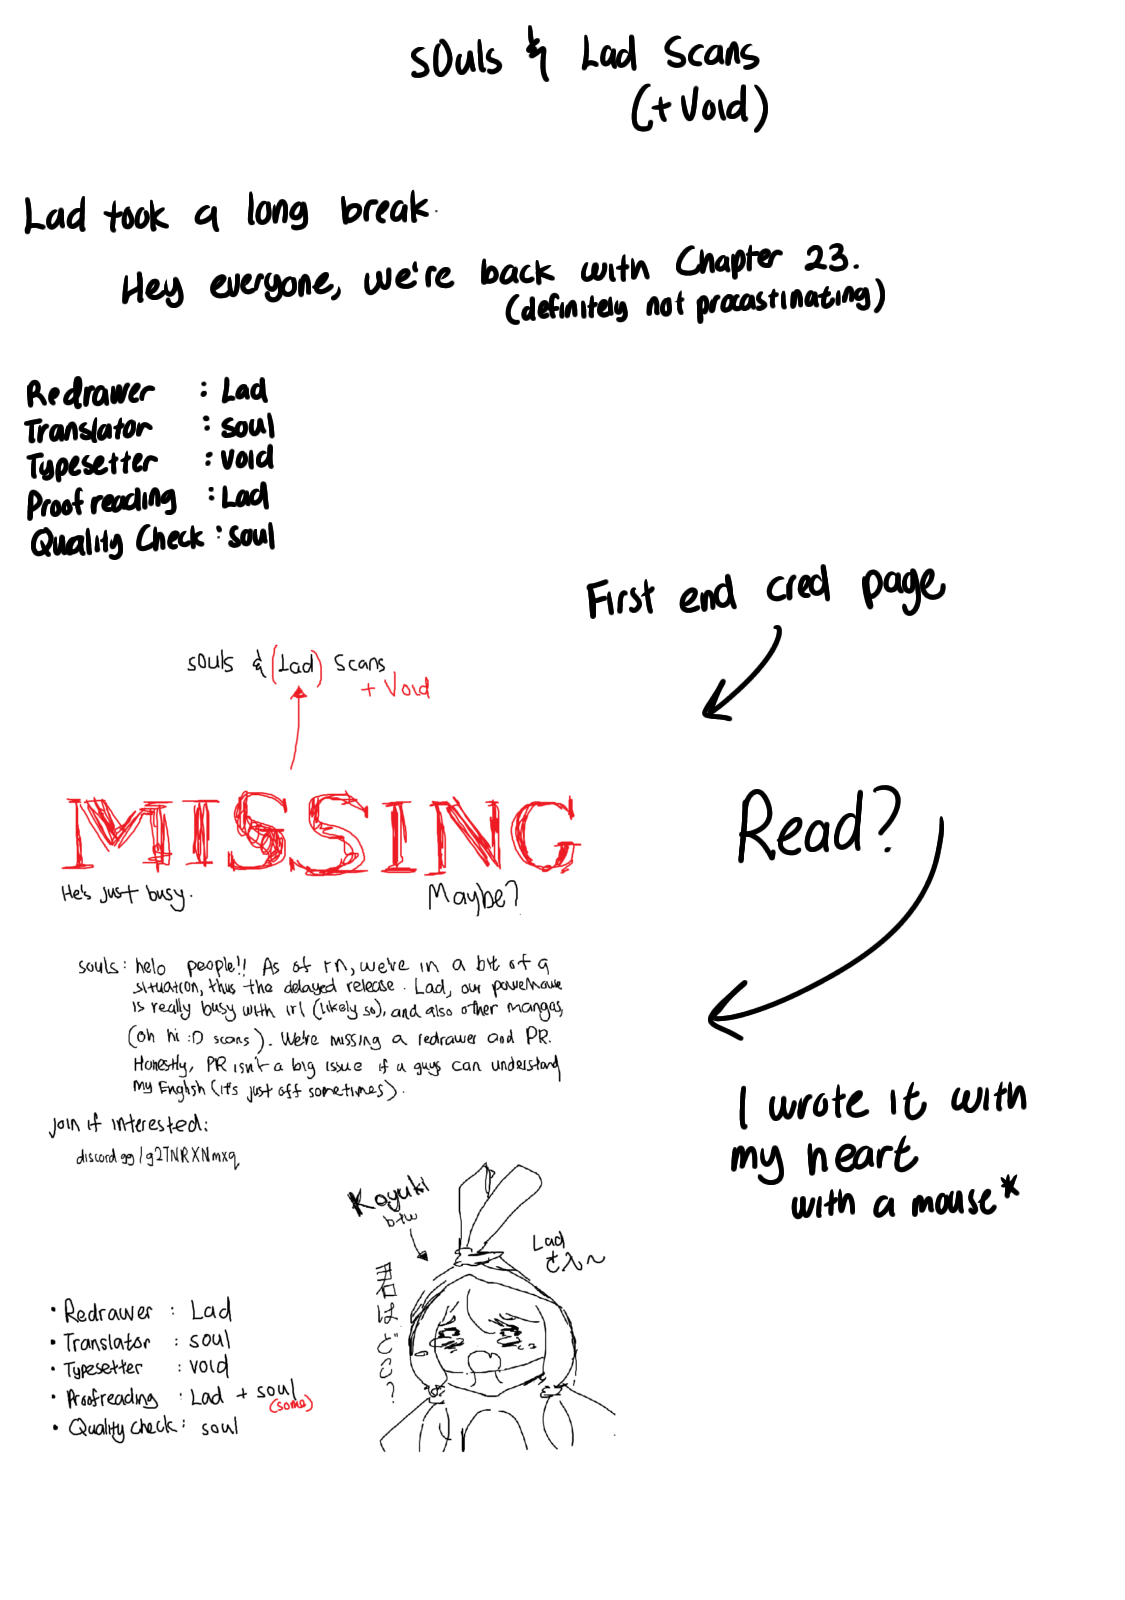 sOuls & Lad Scans
(+ Void)
Lad took a long break.
Hey everyone, we're back with Chapter 23.
(definitely not procastinating)
Redrawer : Lad
Translator : soul
Typesetter : void
Proof reading : Lad
Quality Check : soul
First end cred page
sOuls & (Lad) Scans
+ Void
MISSING
He's just busy.
Maybe?
Read?
souls: helo people!! As of rn, we're in a bit of a
situation, thus the delayed release. Lad, our powerhouse
is really busy with irl (likely so), and also other mangas,
(oh hi :D scans). We're missing a redrawer and PR.
Honestly, PR isn't a big issue if a guys can understand
my English (it's just off sometimes).
Join if interested:
discord.gg/g2TNRXNmxq
I wrote it with
my heart
with a mouse*
Koyuki
btw
Lad
さん~
はどこ?
• Redrawer : Lad
• Translator : soul
• Typesetter : void
• Proofreading : Lad + soul
(some)
• Quality check : soul